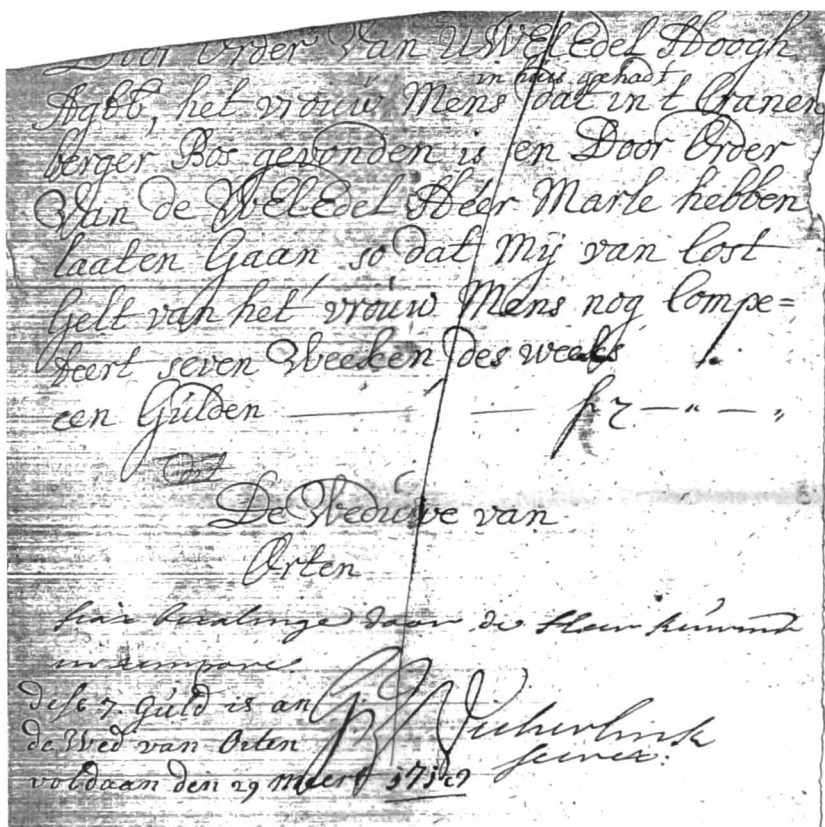 Door Order Van UWelEdel Hoogh
Agbb, het vrouw Mens in huis gehadt dat in t Cranen
berger Bos gevonden is en Door Order
Van de WelEdel Heer Marle hebben
laaten Gaan, so dat Mij van Cost
Gelt van het vrouw Mens nog Compe=
teert seven Weeken des weeks
een Gulden — — f 7 — " — "
De Weduwe van
Orten
fiat betalinge door de Heer
in tempore
dese 7. Guld is an
de Wed van Orten
voldaan den 29 Meert